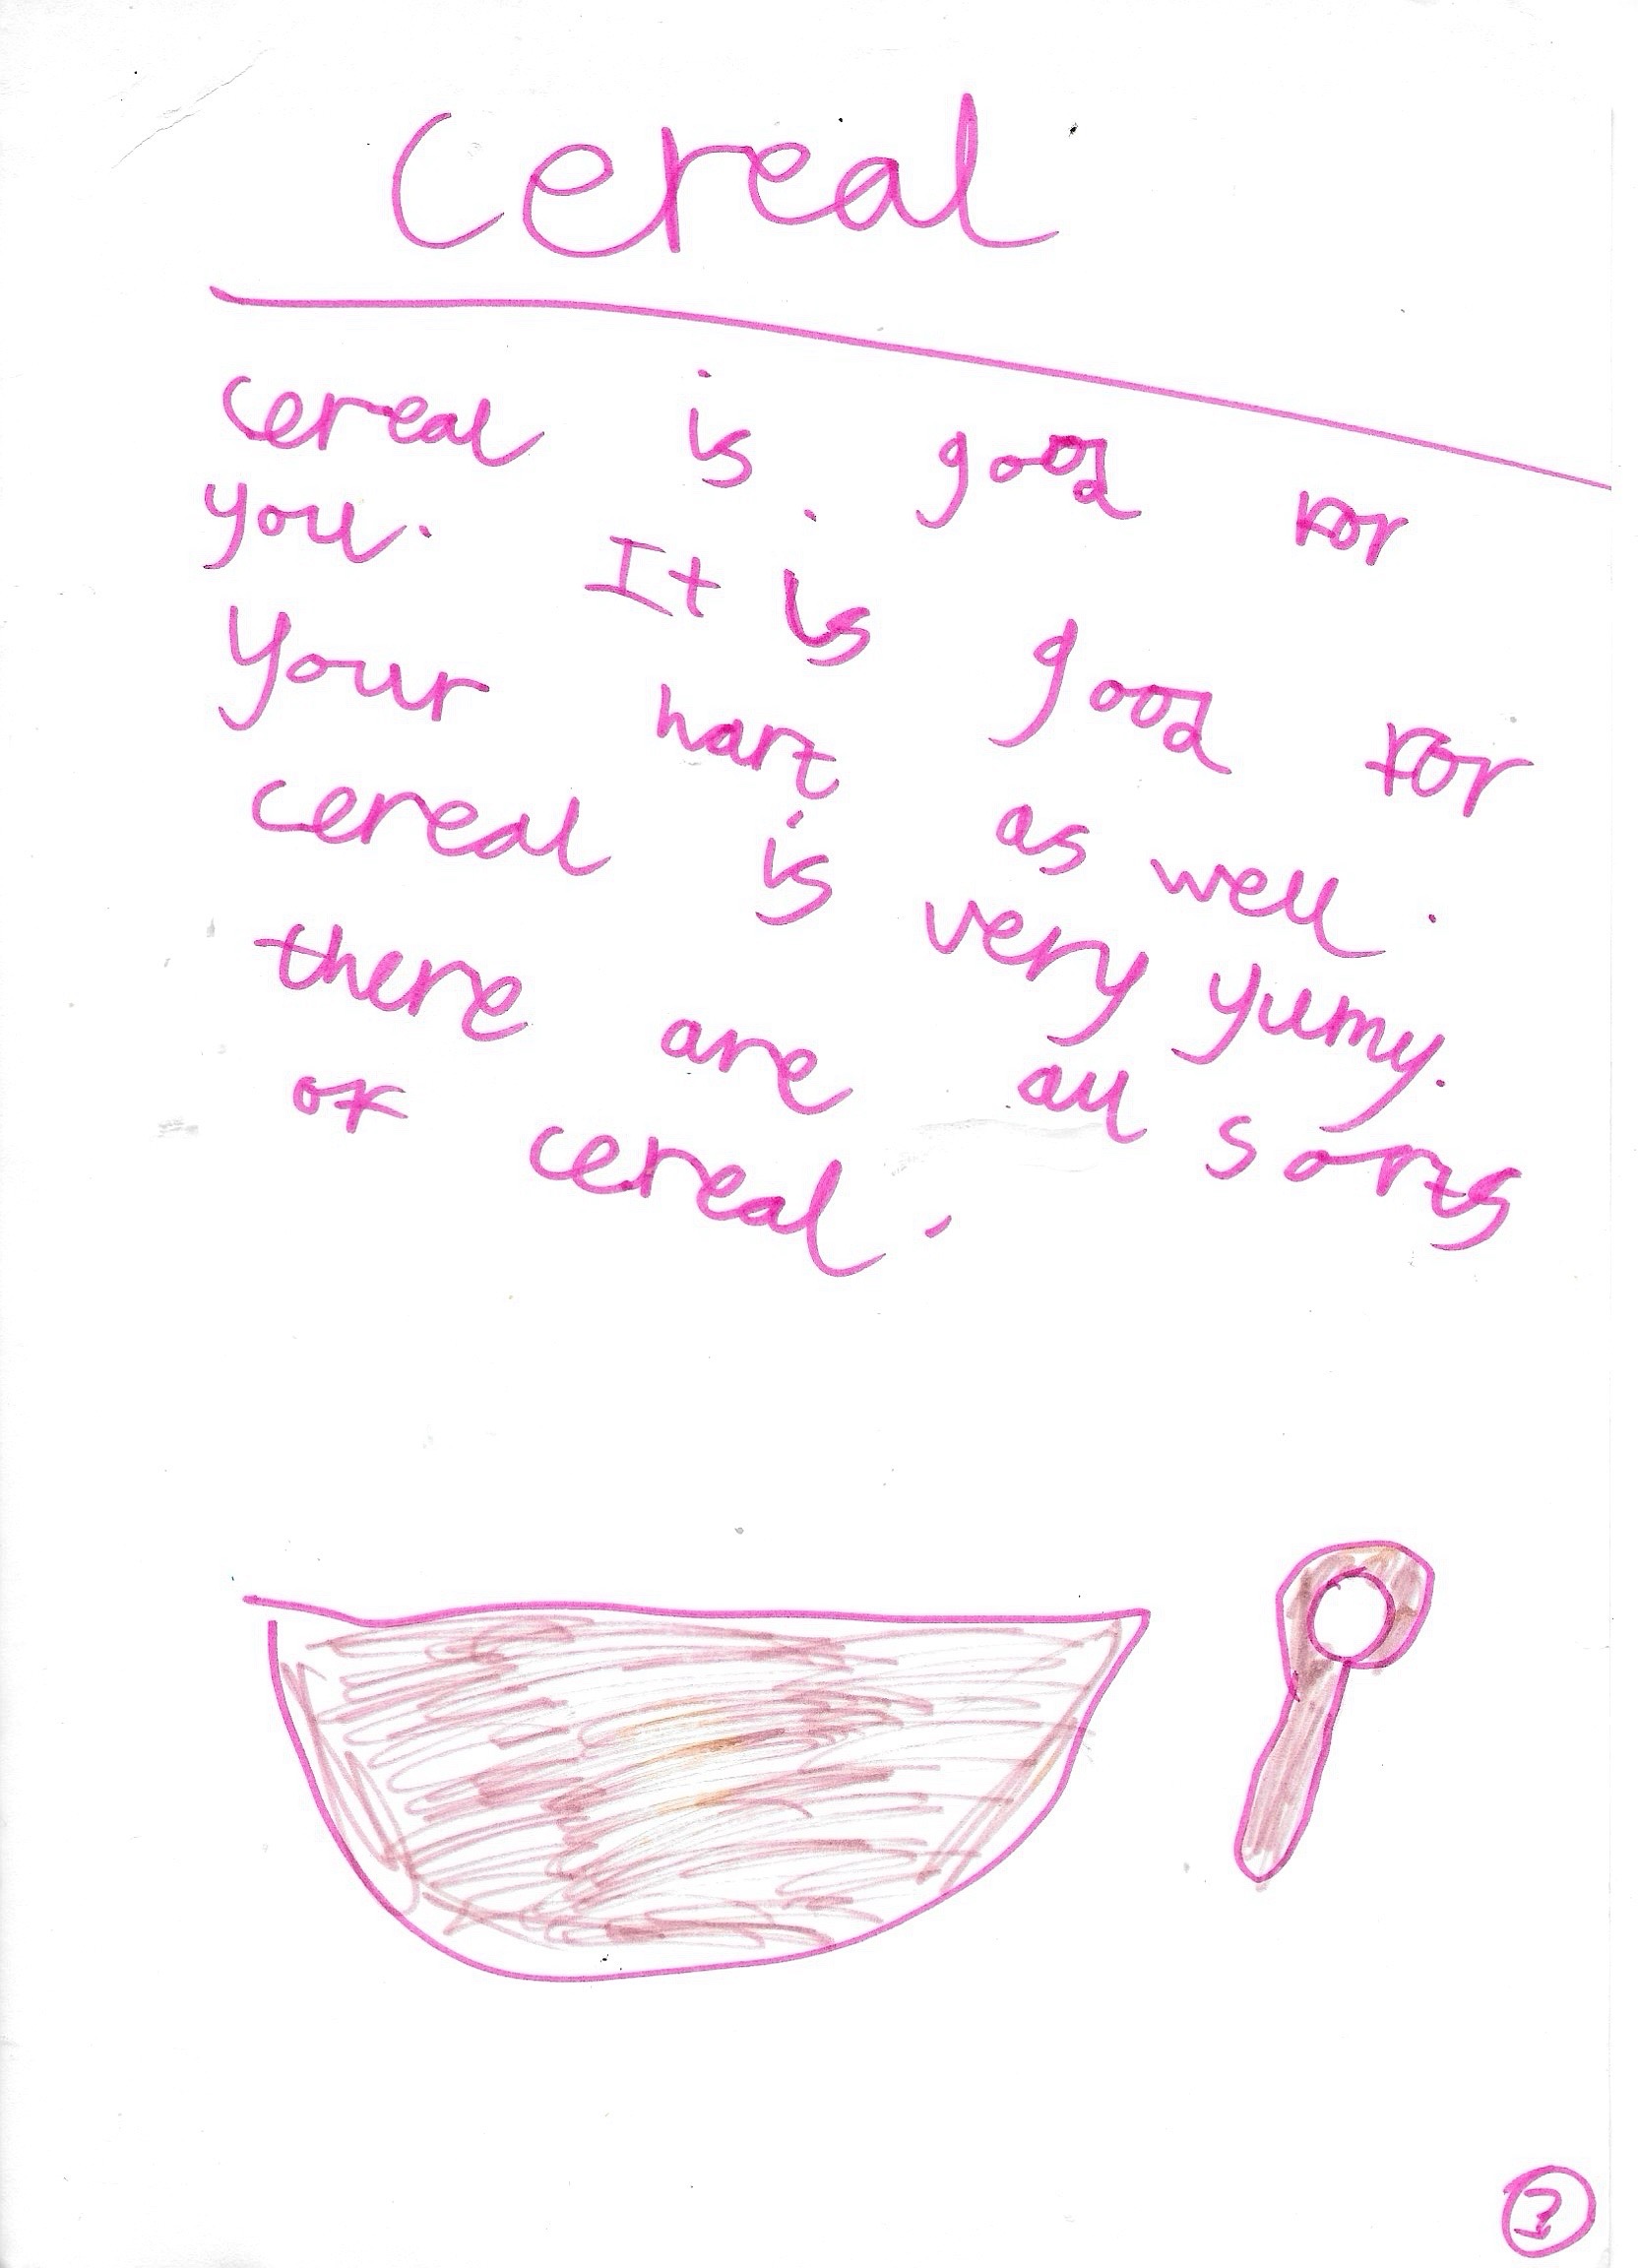 cereal
cereal is good for
you. It is good for
your hart as well.
cereal is very yumy.
there are all sorts
of cereal.
3